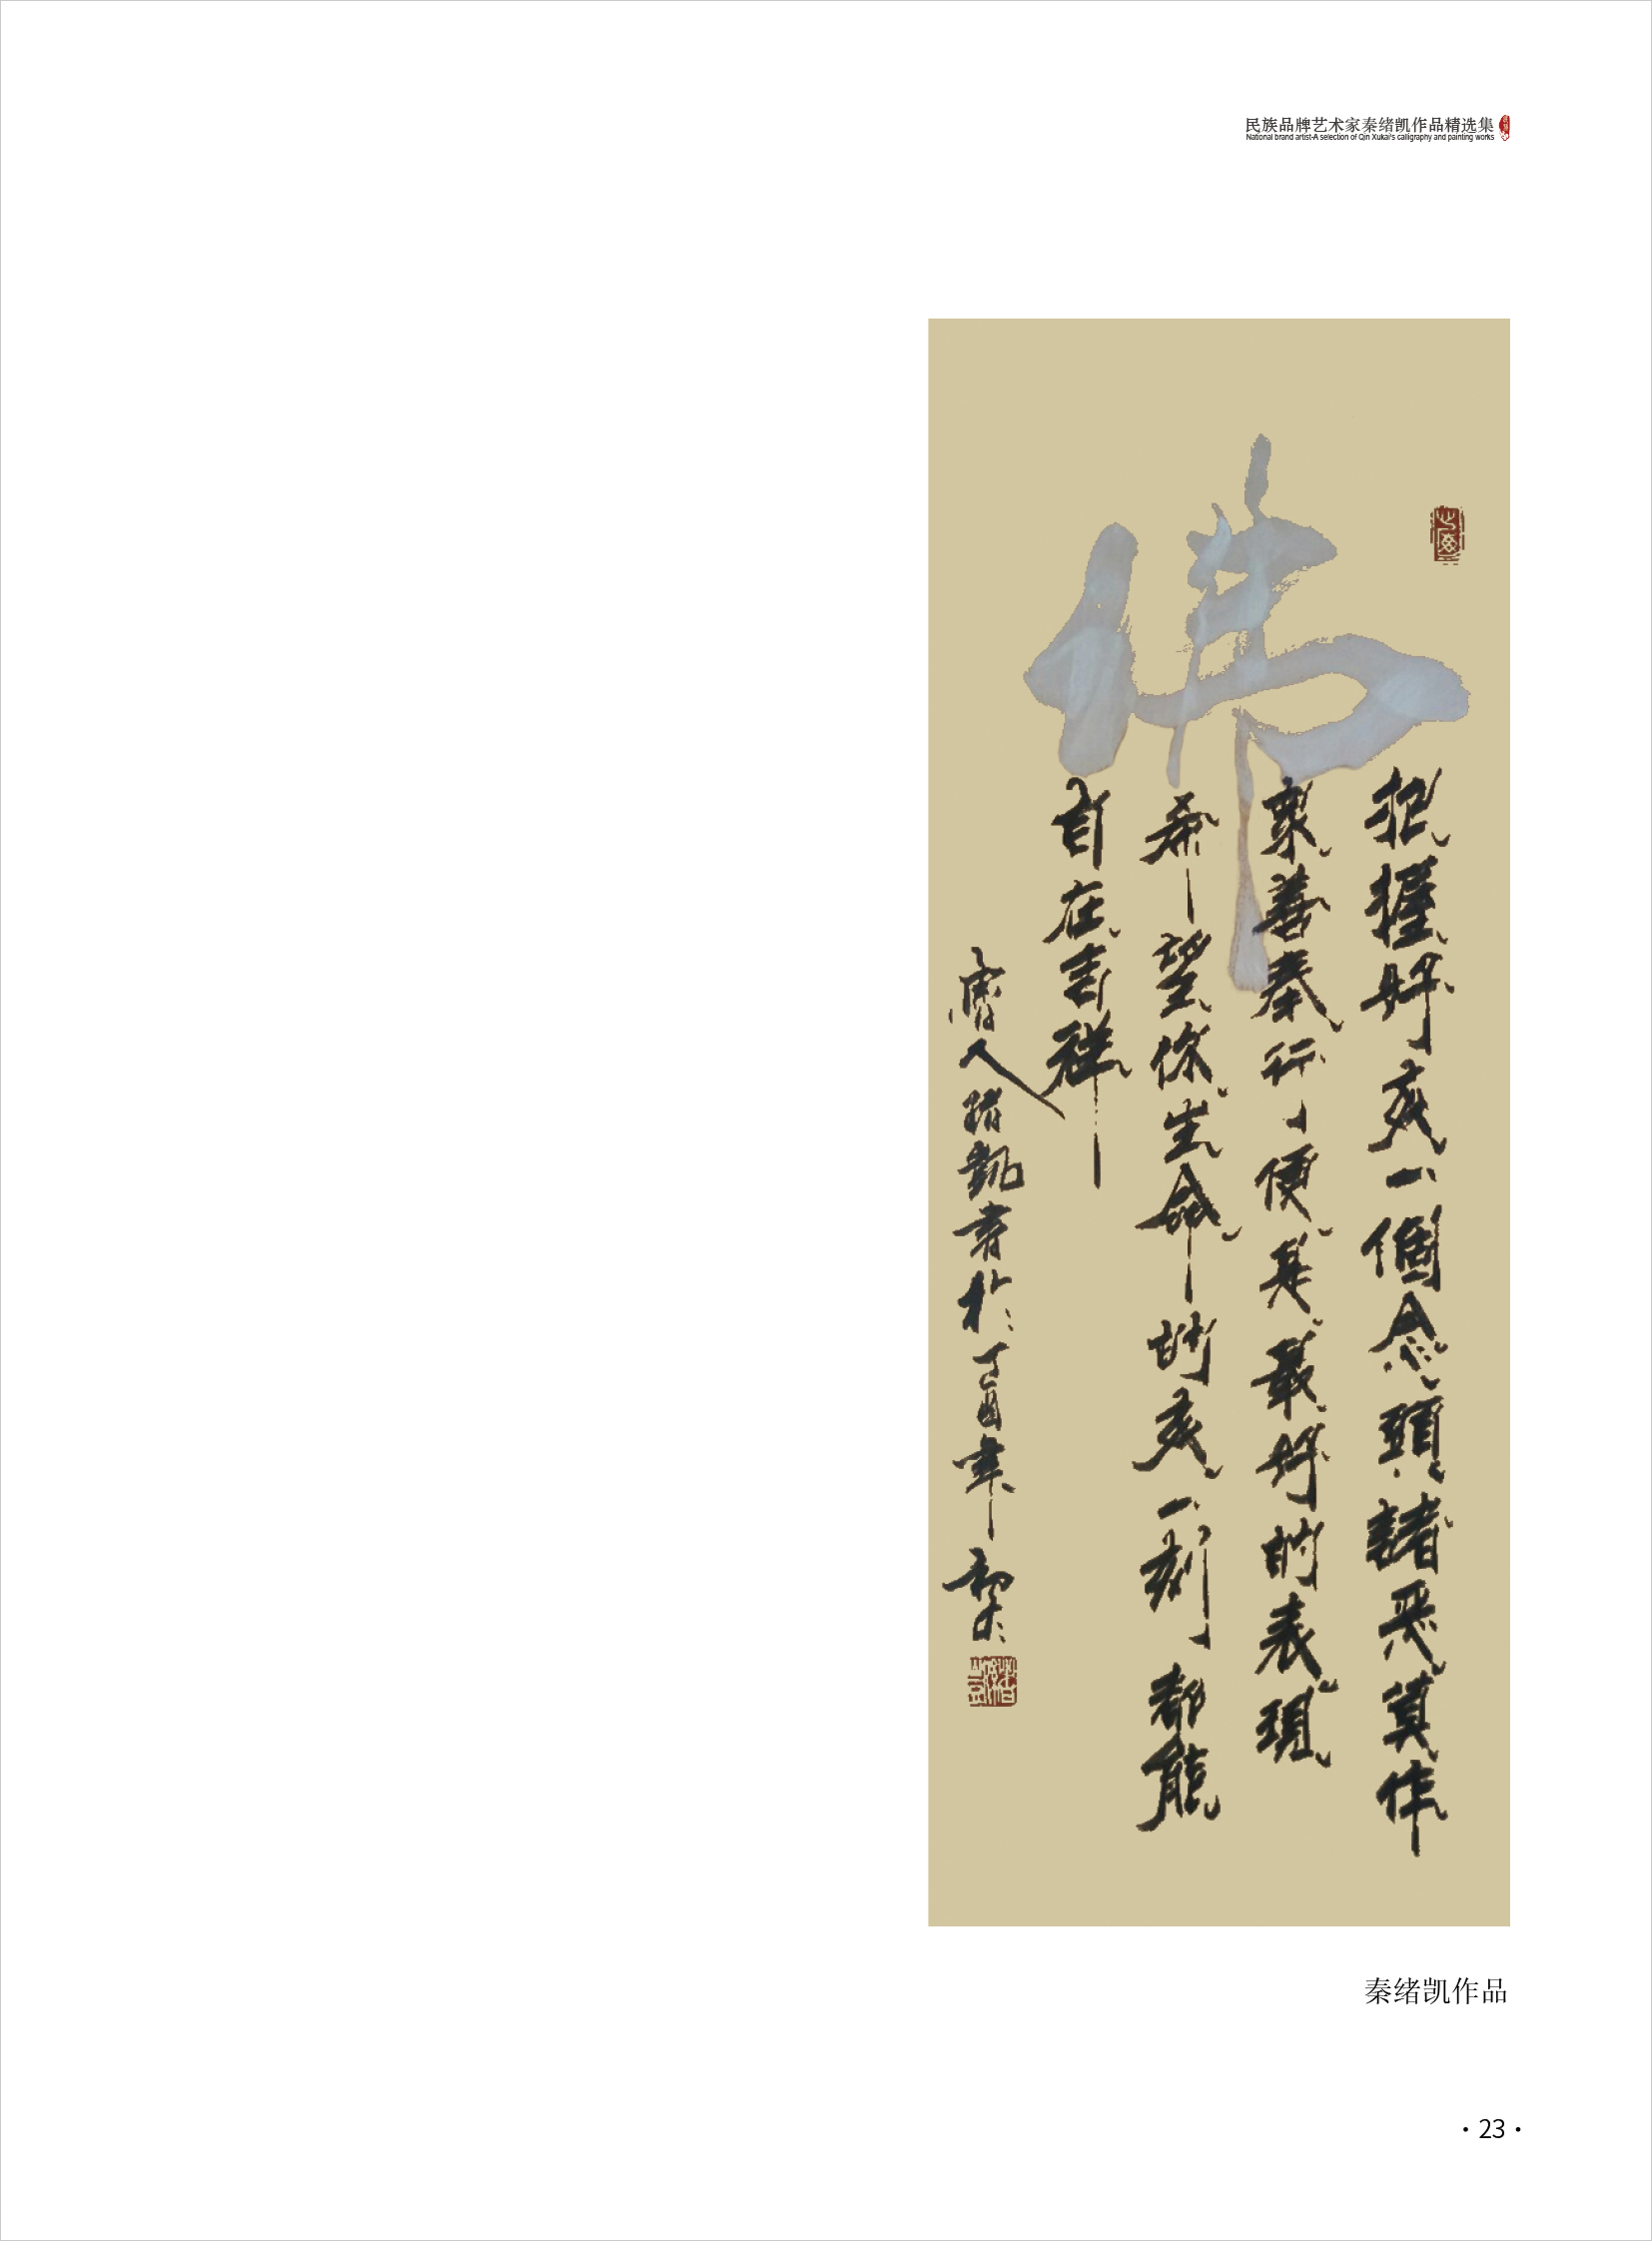 民族品牌艺术家秦绪凯作品精选集
National brand artist-A selection of Qin Xukai's calligraphy and painting works
佛
把握好每一個念頭諸惡莫作
衆善奉行便是最好的表現
希望你生命的每一刻都能
自在吉祥
齊人緒凱書於丁酉年初六
秦绪凯作品
·23·